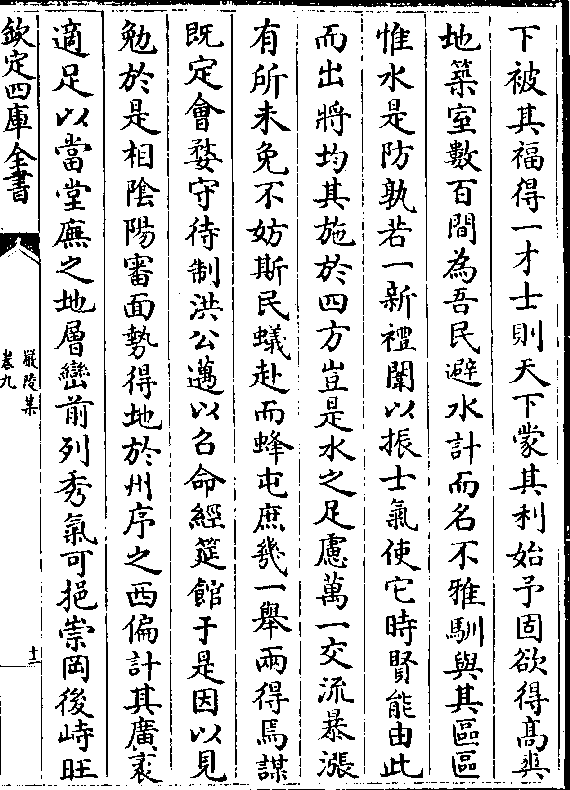 下被其福得一才士則天下蒙其利始予固欲得髙爽
地築室數百間為吾民避水計而名不雅馴與其區區
惟水是防孰若一新禮闈以振士氣使它時賢能由此
而出將均其施於四方豈是水之足慮萬一交流暴漲
有所未免不妨斯民蟻赴而蜂屯庶幾一舉兩得焉謀
既定會婺守待制洪公邁以召命經筵館于是因以見
勉於是相隂陽審面勢得地於州序之西偏計其廣袤
適足以當堂廡之地層巒前列秀氣可挹崇岡後峙旺
欽定四庫全書
嚴陵集
卷九
十二